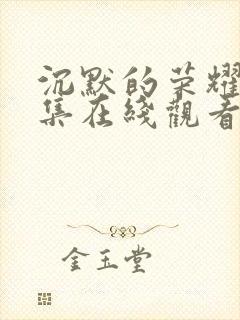 沉默的荣耀
集在綫觀看
金玉堂